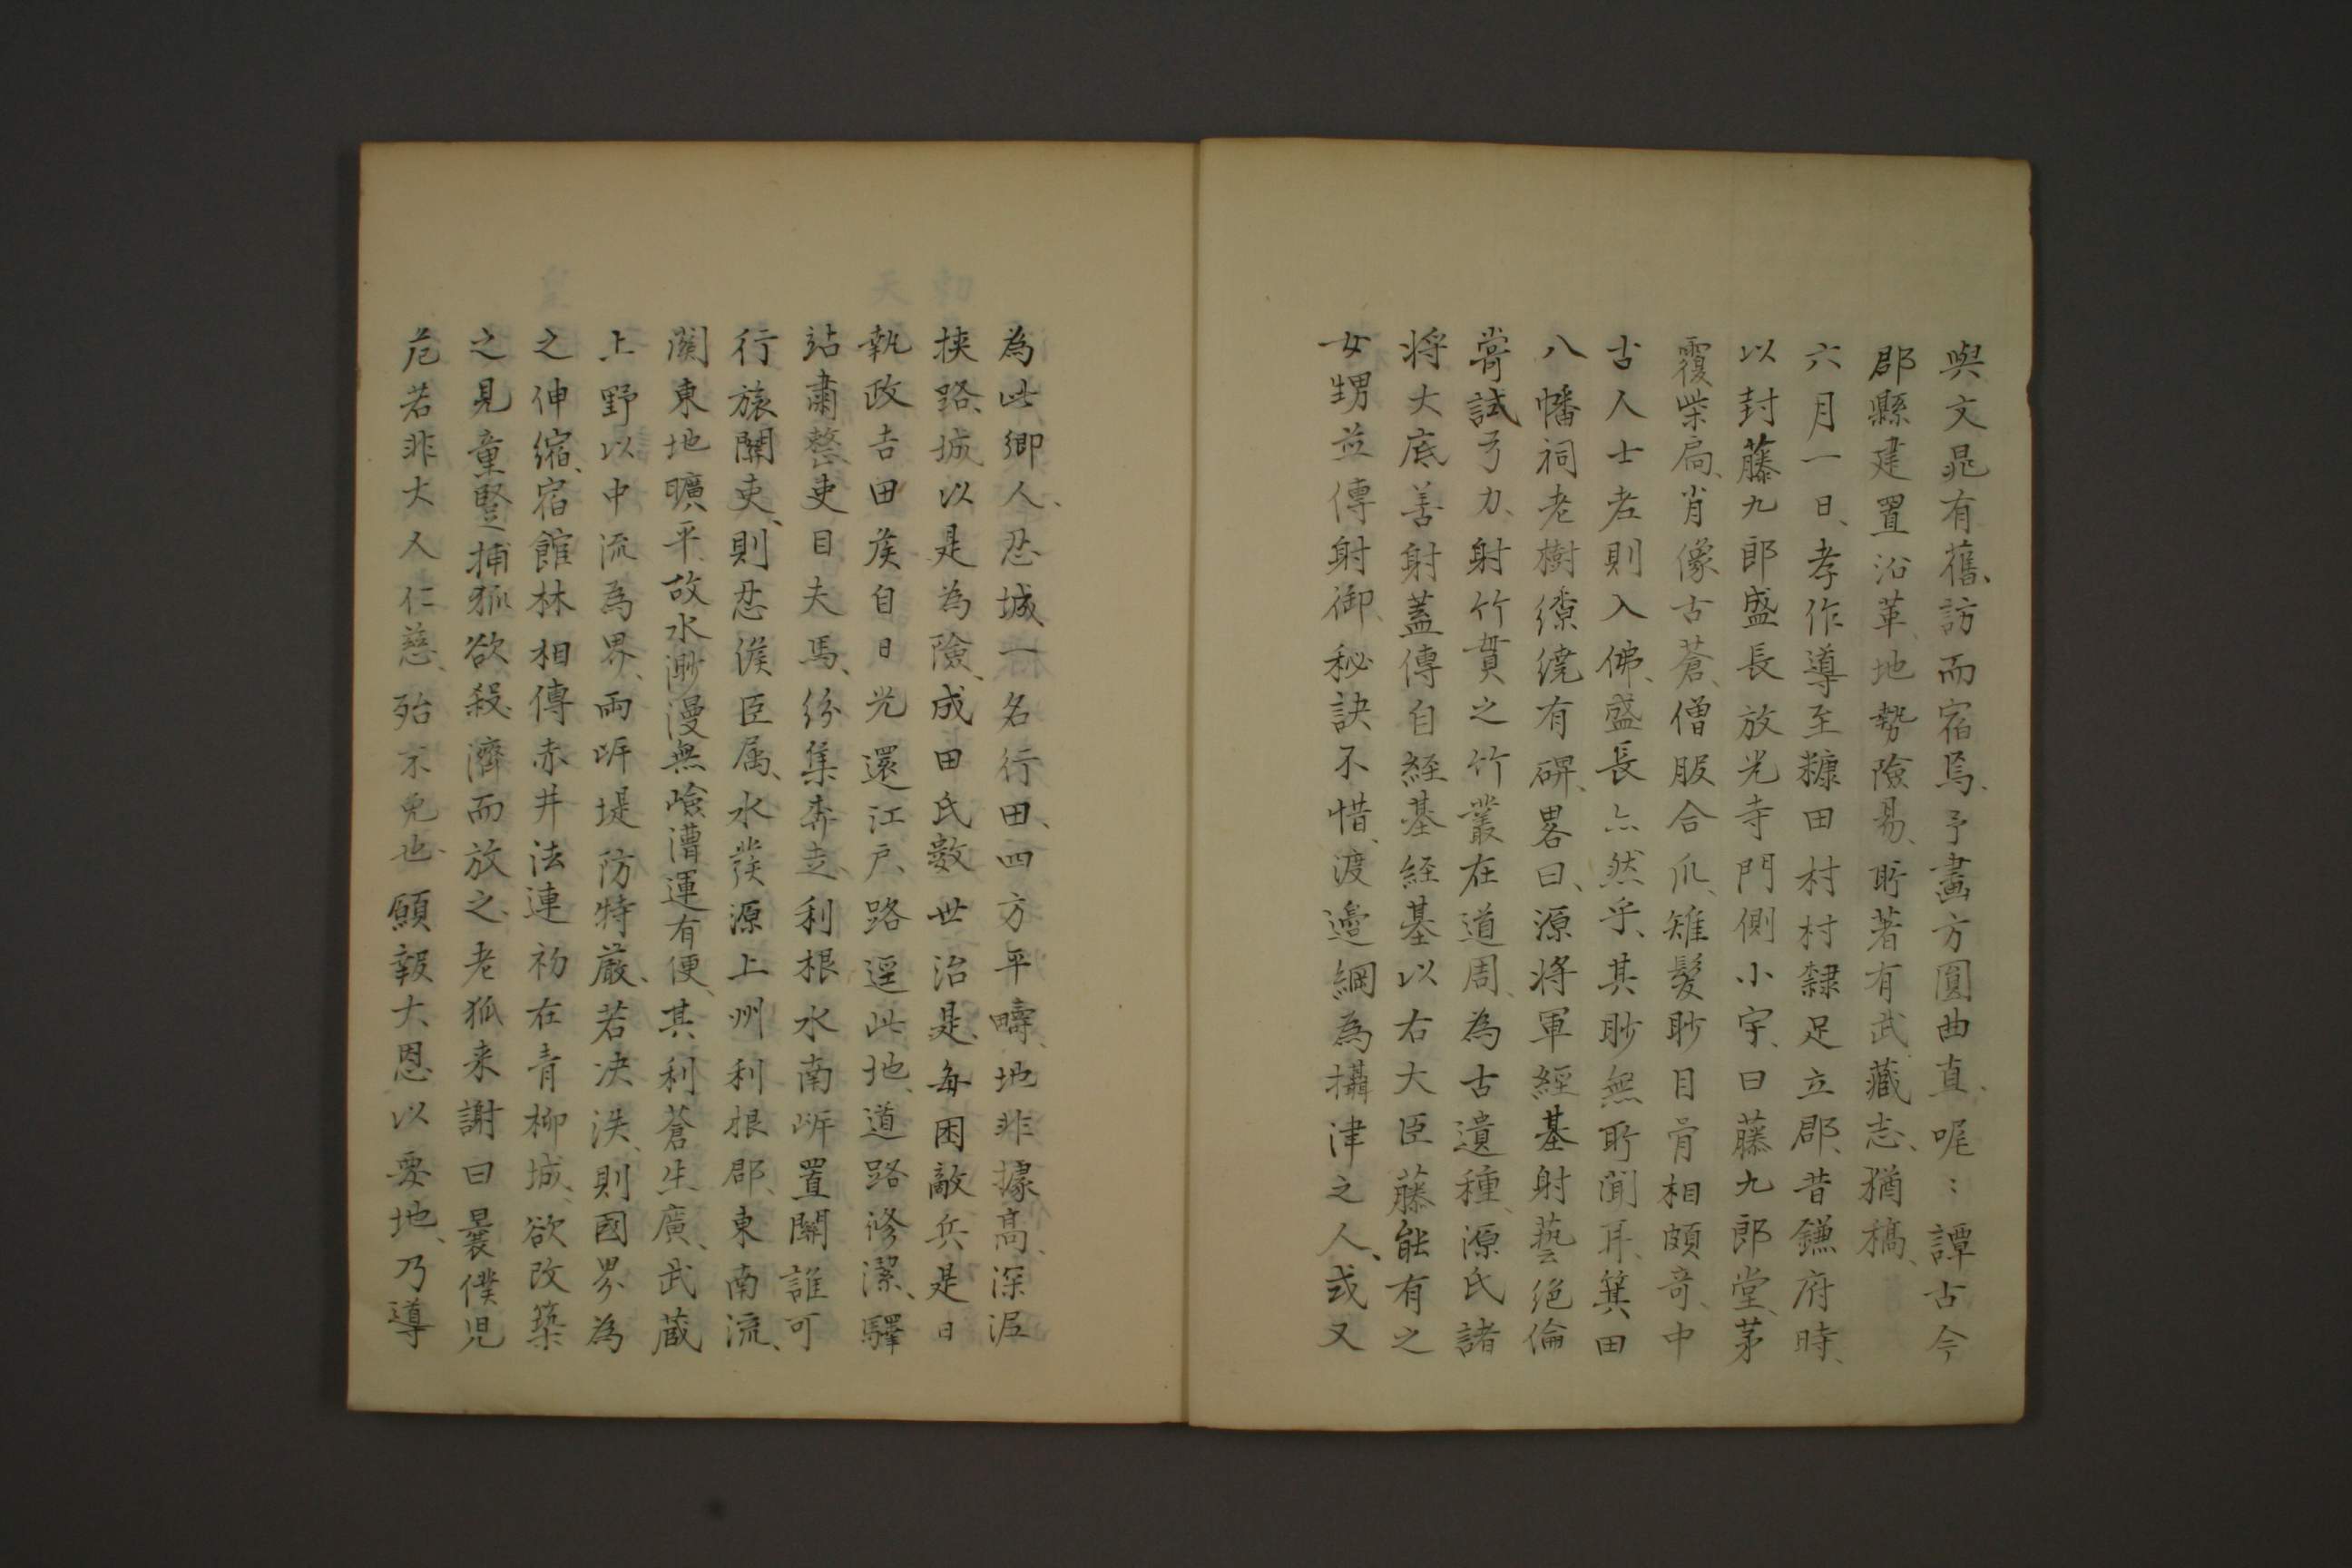 與文晁有舊、訪而宿焉、予畫方圓曲直、呢〻譚古今
郡縣建置沿革、地勢險易、所著有武藏志、猶稿、
六月一日、孝作導至糠田村村隸足立郡、昔鎌府時、
以封藤九郎盛長放光寺門側小宇、曰藤九郎堂、茅
覆柴扃、肖像古蒼、僧服合爪、雉髮眇目骨相頗奇、中
古人士老則入佛、盛長亦然乎、其眇無所聞耳、箕田
八幡祠老樹繚繞有碑、畧曰、源将軍經基射藝絕倫
嘗試弓力、射竹貫之竹叢在道周、為古遺種、源氏諸
将大底善射蓋傳自経基経基以右大臣藤能有之
女甥並傳射御、秘訣不惜、渡邉綱為攝津之人、或又
為此鄉人、忍城一名行田、四方平疇、地非據高、深泥
挟路、城以是為險、成田氏數世治是、每困敵兵是日
執政吉田矦自日光還江戶、路逕此地、道路修潔、驛
站肅整吏目夫馬、紛集奔走、利根水南岍置關誰可
行旅關吏、則忍矦臣属、水発源上州利根郡、東南流、
関東地曠平、故水渺漫無嶮漕運有便、其利蒼生廣、武蔵
上野以中流為界、兩岍堤防特嚴、若决泆、則國界為
之伸縮、宿館林相傳赤井法連初在青柳城、欲改築
之見童豎捕狐欲殺、濟而放之、老狐来謝曰曩僕児
危若非大人仁慈、殆不免也、願報大恩以要地、乃導